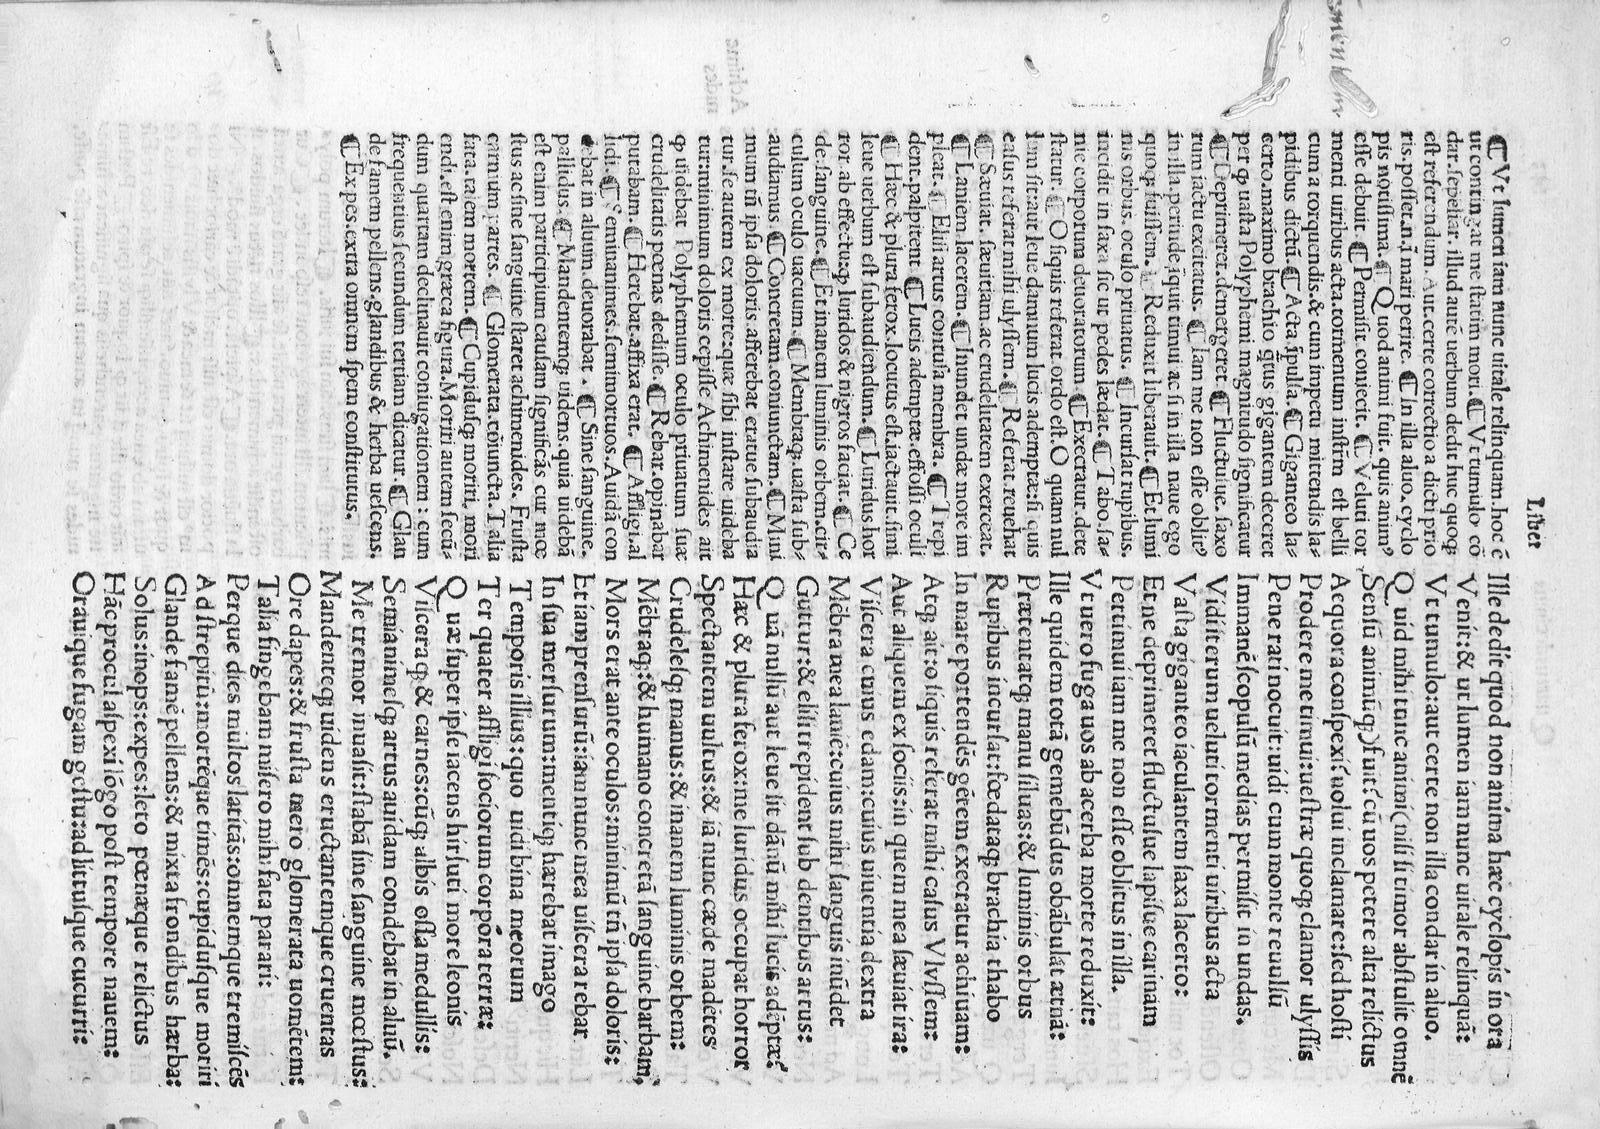 Liber
¶ Vt lumen iam nunc uitale relinquam. hoc ē
ut contingat me statim mori. ¶ Vt tumulo cō
dar. sepeliar. illud aurē uerbum dedit huc quoq;
est referendum. Aut certe correctio a dicti prio
ris. posset. n. ī mari perire. ¶ In illa aluo. cyclo
pis notissima. ¶ Quod animi fuit. quis animꝰ
esse debuit. ¶ Permisit coniecit. ¶ Veluti tor
menti uiribus acta. tormentum instrm est belli
cum a torquendis. & cum impetu mittendis la-
pidibus dictū. ¶ Acta. īpulsa. ¶ Giganteo la-
certo. maximo brachio q̄tus gigantem deceret
per q uasta Polyphemi magnitudo significatur
¶ Deprimeret. demergeret. ¶ Fluctuſue. saxo
rum iactu excitatus. ¶ Iam me non esse oblitꝰ
in illa. perinde īquit timui ac si in illa naue ego
quoq; fuissem. ¶ Reduxit liberauit. ¶ Et lumi
nis orbus. oculo priuatus. ¶ Incursat rupibus.
incidit in saxa sic ut pedes lædat. ¶ Tabo. sa-
nie corporum deuoratorum. ¶ Execratur. dete
statur. ¶ O siquis referat. ordo est. O quam nul
lum sit aut leue damnum lucis ademptæ: si quis
casus referat mihi ulyssem. ¶ Referat. reuehat
¶ Sæuiat. sæuitiam. ac crudelitatem exerceat.
¶ Laniem. lacerem. ¶ Inundet undæ more im
pleat. ¶ Elisi artus contusa membra. ¶ Trepi
dent. palpitent. ¶ Lucis ademptæ. effossi oculi
¶ Hæc & plura ferox. locutus est. iactauit. simi
leue uerbum est subaudiendum. ¶ Luridus hor
ror. ab effectu: q luridos & nigros faciat. ¶ Cę
de. sanguine. ¶ Et inanem luminis orbem. cir-
culum oculo uacuum. ¶ Membraq;. uasta sub-
audiamus ¶ Concretam. coniunctam. ¶ Mini
mum tñ ipsa doloris afferebat erat ue subaudia
tur. se autem ex morte: quæ sibi instare uideba
tur: minimum doloris cepisse Achimenides ait
q uidebat Polyphemum oculo priuatum suæ
crudelitatis pœnas dedisse. ¶ Rebar. opinabar
putabam. ¶ Herebat. affixa erat. ¶ Affligi. al
lidi. ¶ Semianimes. seminortuos. Auidā con
debat in aluum. deuorabat. ¶ Sine sanguine.
pallidus. ¶ Mandentemq; uidens. quia uidebā
est enim participium causam significās cur mœ
stus ac sine sanguine staret achimenides. Frusta
carnium partes. ¶ Glomerata. cōiuncta. Talia
fata. talem mortem. ¶ Cupidusq; moriri, mori
endi. est enim græca figura. Moriri autem secū-
dum quartam declinauit coniugationem: cum
frequentius secundum tertiam dicatur. ¶ Glan
de famem pellens. glandibus & herba uescens.
¶ Expes. extra omnem spem constitutus.
Ille dedit quod non anima hæc cyclopis in ora
Venit: & ut lumen iam nunc uitale relinquā:
Vt tumulo: aut certe non illa condar in aluo.
Quid mihi tunc animi (nisi si timor abstulit omnē
Sensū animūq;) fuit? cū uos petere alta relictus
Aequora conspexi? uolui inclamare: sed hosti
Prodere me timui: uestræ quoq; clamor ulyssis
Pene rati nocuit: uidi cum monte reuulsū
Immanē scopulū medias permisit in undas.
Vidi iterum ueluti tormenti uiribus acta
Vasta giganteo iaculantem saxa lacerto:
Et ne deprimeret fluctusue lapisue carinam
Pertimui iam me non esse oblitus in illa.
Vt uero fuga uos ab acerba morte reduxit:
Ille quidem totā gemebūdus obābulat ætnā:
Prætentatq; manu siluas: & luminis orbus
Rupibus incursat: fœdataq; brachia thabo
In mare portendēs gētem execratur achiuam:
Atq; ait: o siquis referat mihi casus Vlyssem:
Aut aliquem ex sociis: in quem mea sæuiat ira:
Viscera cuius edam: cuius uiuentia dextra
Mēbra mea laniē: cuius mihi sanguis inūdet
Guttur: & elisi trepident sub dentibus artus:
Quā nullū aut leue sit dānū mihi lucis adēptæ?
Hæc & plura ferox: me luridus occupat horror
Spectantem uultus: & iā nunc cæde madētes
Crudelesq; manus: & inanem luminis orbem:
Mēbraq;: & humano concretā sanguine barbam,
Mors erat ante oculos: minimū tñ ipsa doloris:
Et iam prensurū: iam nunc mea uiscera rebar
In sua mersurum: mentiq; hærebat imago
Temporis illius: quo uidi bina meorum
Ter quater affligi sociorum corpora terræ:
Quæ super ipse iacens hirsuti more leonis
Visceraq; & carnes: cūq; albis ossa medullis:
Semianimesq; artus auidam condebat in aluū.
Me tremor inuasit: stabā sine sanguine mœstus:
Mandenteq; uidens eructantemque cruentas
Ore dapes: & frusta mero glomerata uomētem:
Talia fingebam misero mihi fata parari:
Perque dies multos latitās: omnemque tremiscēs
Ad strepitū: mortēque timēs: cupidusque moriri
Glande famē pellens: & mixta frondibus hærba:
Solus: inops: expes: leto pœnæque relictus
Hāc procul aspexi lōgo post tempore nauem:
Orauique fugam gestu: ad litusque cucurri: